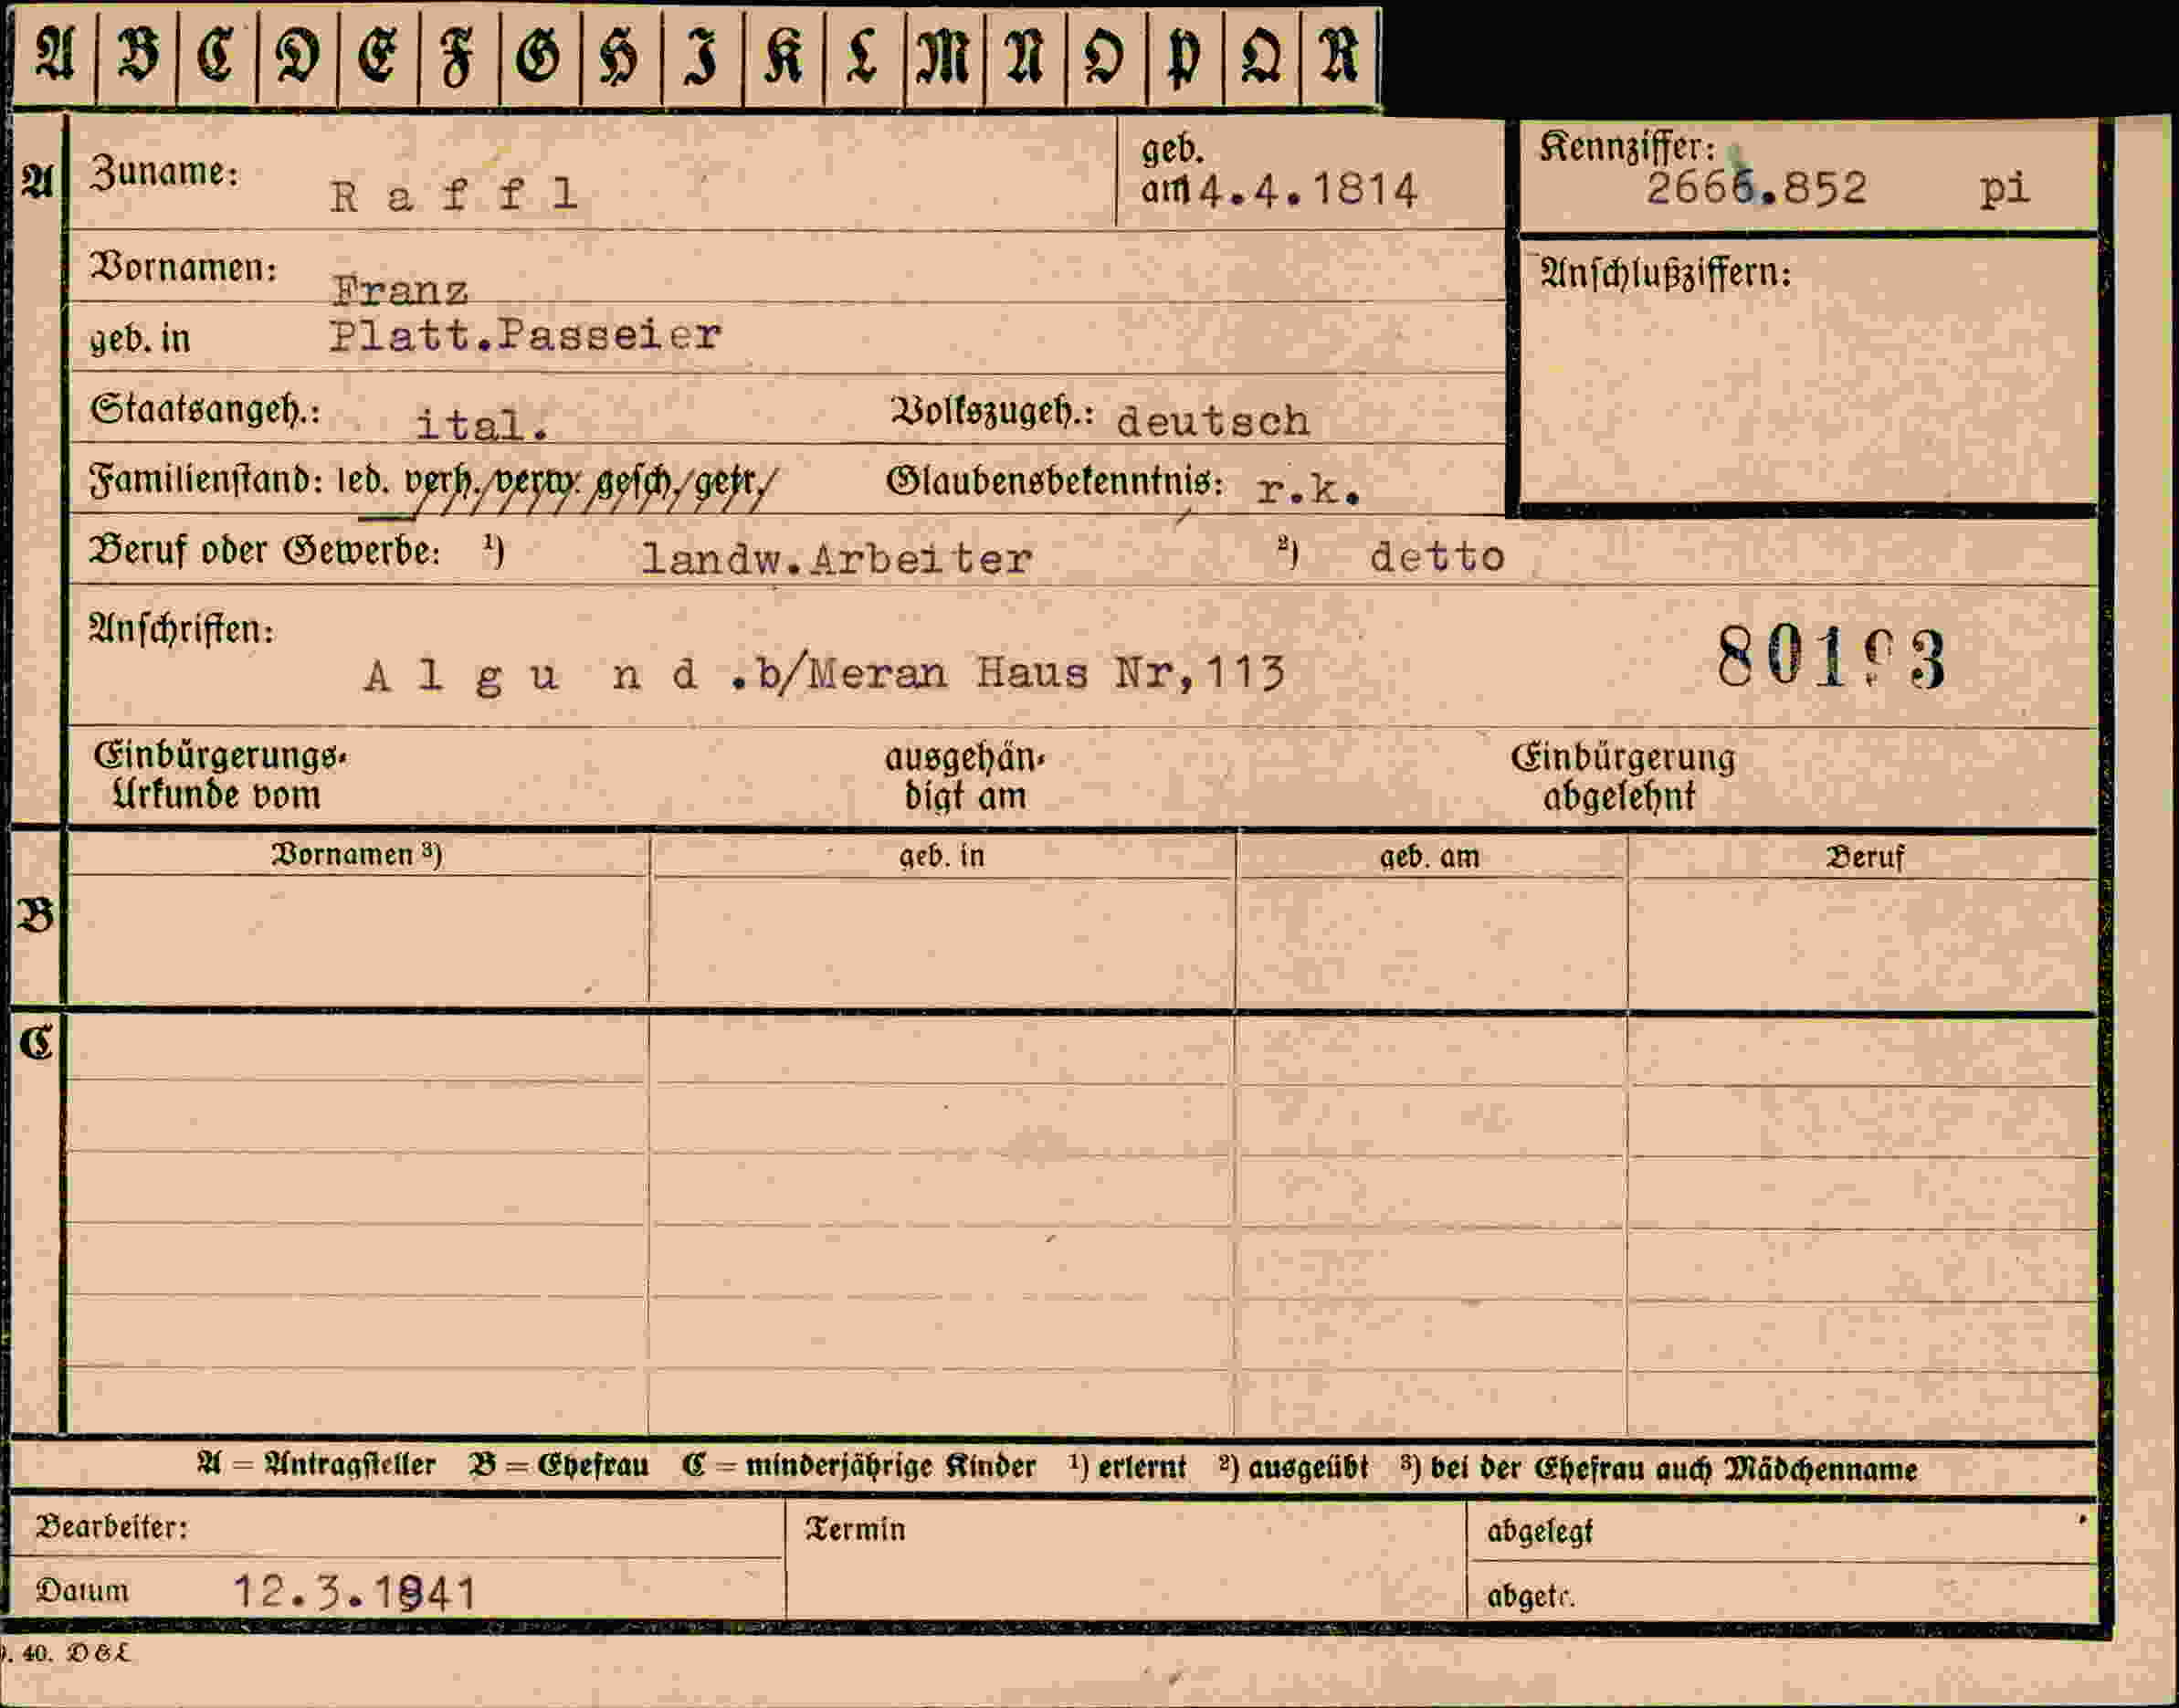 A B C D E F G H I K L M N O P Q R
A Zuname: Raffl geb. am 4.4.1814 Kennziffer: 2666.852 pi
Vornamen: Franz Anschlußziffern:
geb. in Platt.Passeier
Staatsangeh.: ital. Volkszugeh.: deutsch
Familienstand: led. verh. verw. gesch. getr. Glaubensbekenntnis: r.k.
Beruf oder Gewerbe: ¹) landw.Arbeiter ²) detto
Anschriften: Algund.b/Meran Haus Nr,113
Einbürgerungs- ausgehän- Einbürgerung
Urkunde vom digt am abgelehnt
Vornamen ³) geb. in geb. am Beruf
B
C
A = Antragsteller B = Ehefrau C = minderjährige Kinder ¹) erlernt ²) ausgeübt ³) bei der Ehefrau auch Mädchenname
Bearbeiter: Termin abgelegt
Datum 12.3.1941 abgetr.
40. D&L